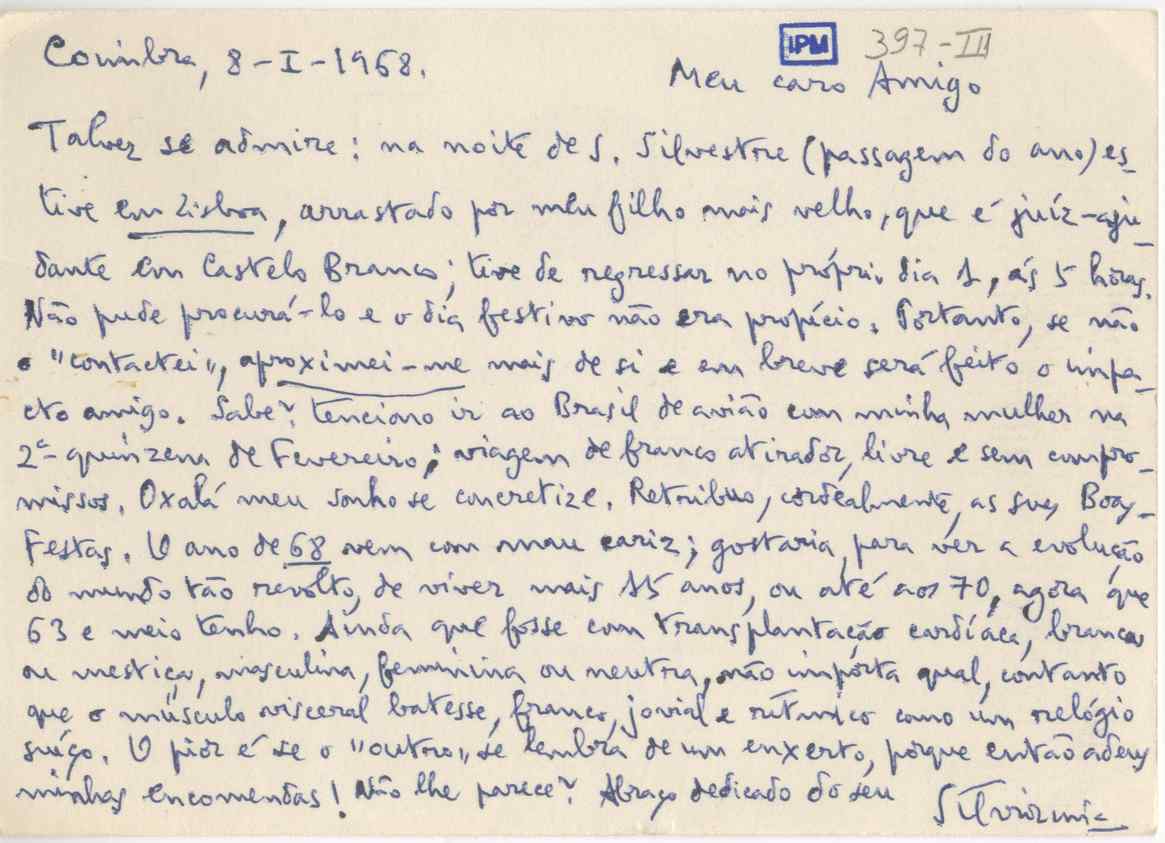 IPM 397-III
Coimbra, 8-I-1968.
Meu caro Amigo
Talvez se admire: na noite de S. Silvestre (passagem do ano) es_
tive em Lisboa, arrastado por meu filho mais velho, que é juíz-aju_
dante em Castelo Branco; tive de regressar no próprio dia 1, ás 5 horas.
Não pude procurá-lo e o dia festivo não era propício. Portanto, se não
o "contactei", aproximei-me mais de si e em breve será feito o impa_
cto amigo. Sabe? Tenciono ir ao Brasil de avião com minha mulher na
2ª quinzena de Fevereiro; viagem de franco atirador, livre e sem compro_
missos. Oxalá meu sonho se concretize. Retribuo, cordealmente, as suas Boas_
Festas. O ano de 68 vem com mau cariz; gostaria, para ver a evolução
do mundo tão revolto, de viver mais 15 anos, ou até aos 70, agora que
63 e meio tenho. Ainda que fosse com transplantação cardíaca, branca
ou mestiça, masculina, feminina ou neutra, não impórta qual, contanto
que o músculo visceral batesse, franco, jovial e rítmico como um relógio
suíço. O pior é se o "outro" se lembra de um enxerto, porque então adeus
minhas encomendas! Não lhe parece? Abraço dedicado do seu